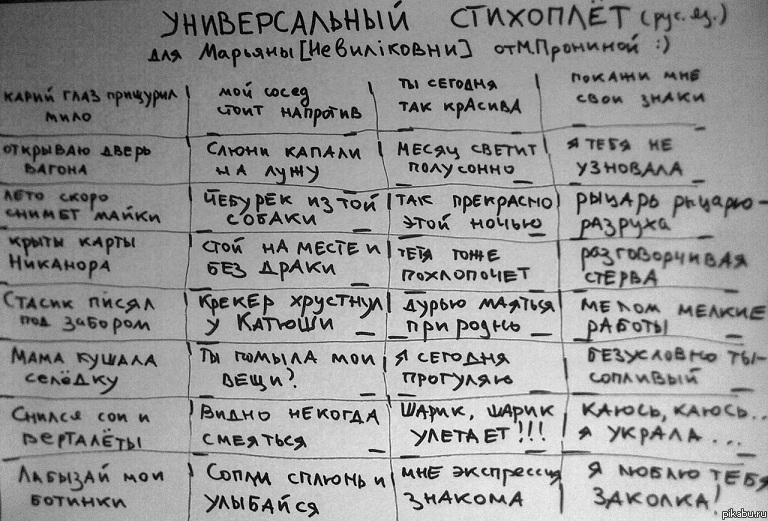 УНИВЕРСАЛЬНЫЙ СТИХОПЛЁТ (рус. яз.)
для Марьяны [Невиліковни] от М. Прониной :)
КАРИЙ ГЛАЗ ПРИЩУРИЛ
МИЛО
МОЙ СОСЕД
СТОИТ НАПРОТИВ
ТЫ СЕГОДНЯ
ТАК КРАСИВА
ПОКАЖИ МНЕ
СВОИ ЗНАКИ
ОТКРЫВАЮ ДВЕРЬ
ВАГОНА
СЛЮНИ КАПАЛИ
НА ЛУЖУ
МЕСЯЦ СВЕТИТ
ПОЛУСОННО
Я ТЕБЯ НЕ
УЗНОВАЛА
ЛЕТО СКОРО
СНИМЕТ МАЙКИ
ЧЕБУРЕК ИЗ ТОЙ
СОБАКИ
ТАК ПРЕКРАСНО
ЭТОЙ НОЧЬЮ
РЫЦАРЬ РЫЦАРЮ-
РАЗРУХА
КРЫТЫ КАРТЫ
НИКАНОРА
СТОЙ НА МЕСТЕ И
БЕЗ ДРАКИ
ТЕТЯ ТОЖЕ
ПОХЛОПОЧЕТ
РАЗГОВОРЧИВАЯ
СТЕРВА
СТАСИК ПИСЯЛ
ПОД ЗАБОРОМ
КРЕКЕР ХРУСТНУЛ
У КАТЮШИ
ДУРЬЮ МАЯТЬСЯ
ПРИРОДНО
МЕЛОМ МЕЛКИЕ
РАБОТЫ
МАМА КУШАЛА
СЕЛЁДКУ
ТЫ ПОМЫЛА МОИ
ВЕЩИ?
Я СЕГОДНЯ
ПРОГУЛЯЮ
БЕЗУСЛОВНО ТЫ-
СОПЛИВЫЙ
СНИЛСЯ СОН И
ВЕРТАЛЁТЫ
ВИДНО НЕКОГДА
СМЕЯТЬСЯ
ШАРИК, ШАРИК
УЛЕТАЕТ!!!
КАЮСЬ, КАЮСЬ..
Я УКРАЛА...
ЛАБЫЗАЙ МОИ
БОТИНКИ
СОПЛИ СПЛЮНЬ И
УЛЫБАЙСЯ
МНЕ ЭКСПРЕССИЯ
ЗНАКОМА
Я ЛЮБЛЮ ТЕБЯ
ЗАКОЛКА!
pikabu.ru